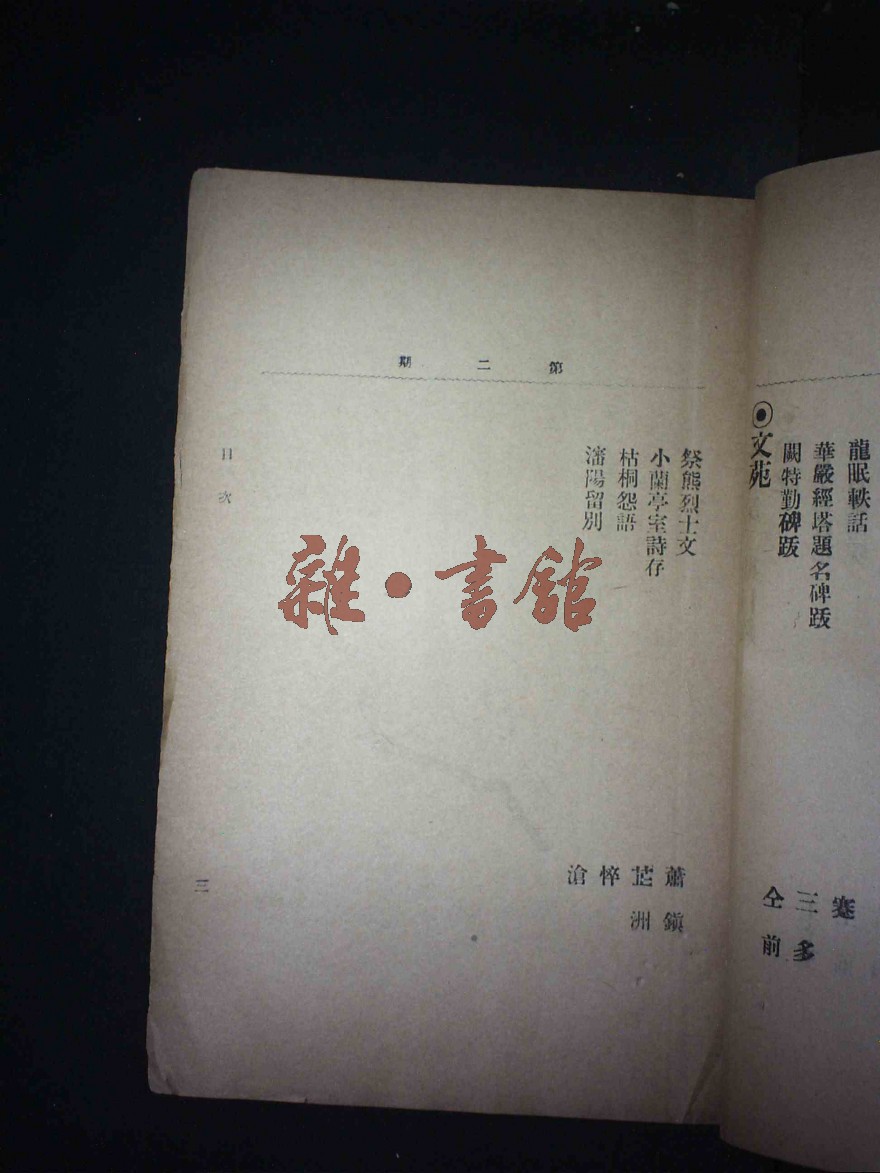 龍眠軼話
蹇
華嚴經塔題名碑跋
三多
闕特勤碑跋
仝前
⦿文苑
第二期
祭熊烈士文
蕭鎮
小蘭亭室詩存
芷洲
枯桐怨語
悴
瀋陽留別
滄
目次
三
雜·書館